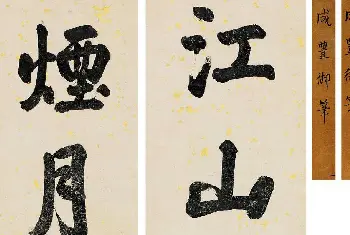 咸豐御筆
江山
煙月